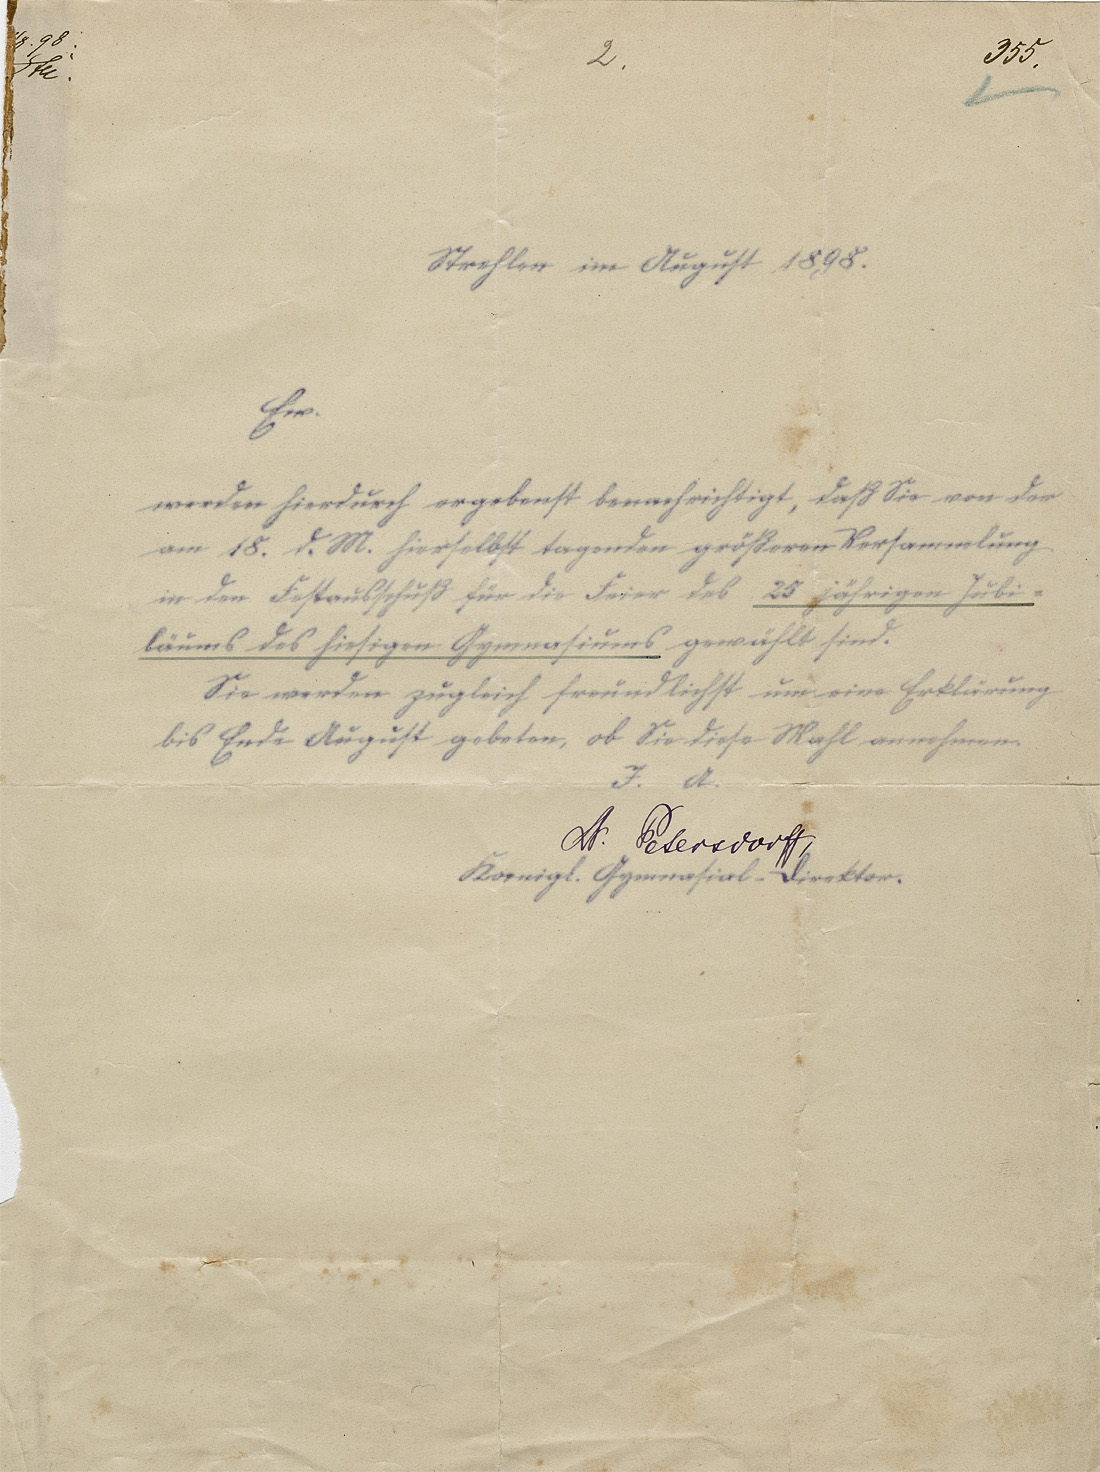 8.98.
2.
355.
Strehlen im August 1898.
Ew.
werden hierdurch ergebenst benachrichtigt, daß Sie von der
am 18. d. M. hierselbst tagenden größeren Versammlung
in den Festausschuß für die Feier des 25 jährigen Jubi-
läums des hiesigen Gymnasiums gewählt sind.
Sie werden zugleich freundlichst um eine Erklärung
bis Ende August gebeten, ob Sie diese Wahl annehmen.
I. A.
Petersdorff,
Koenigl. Gymnasial-Direktor.